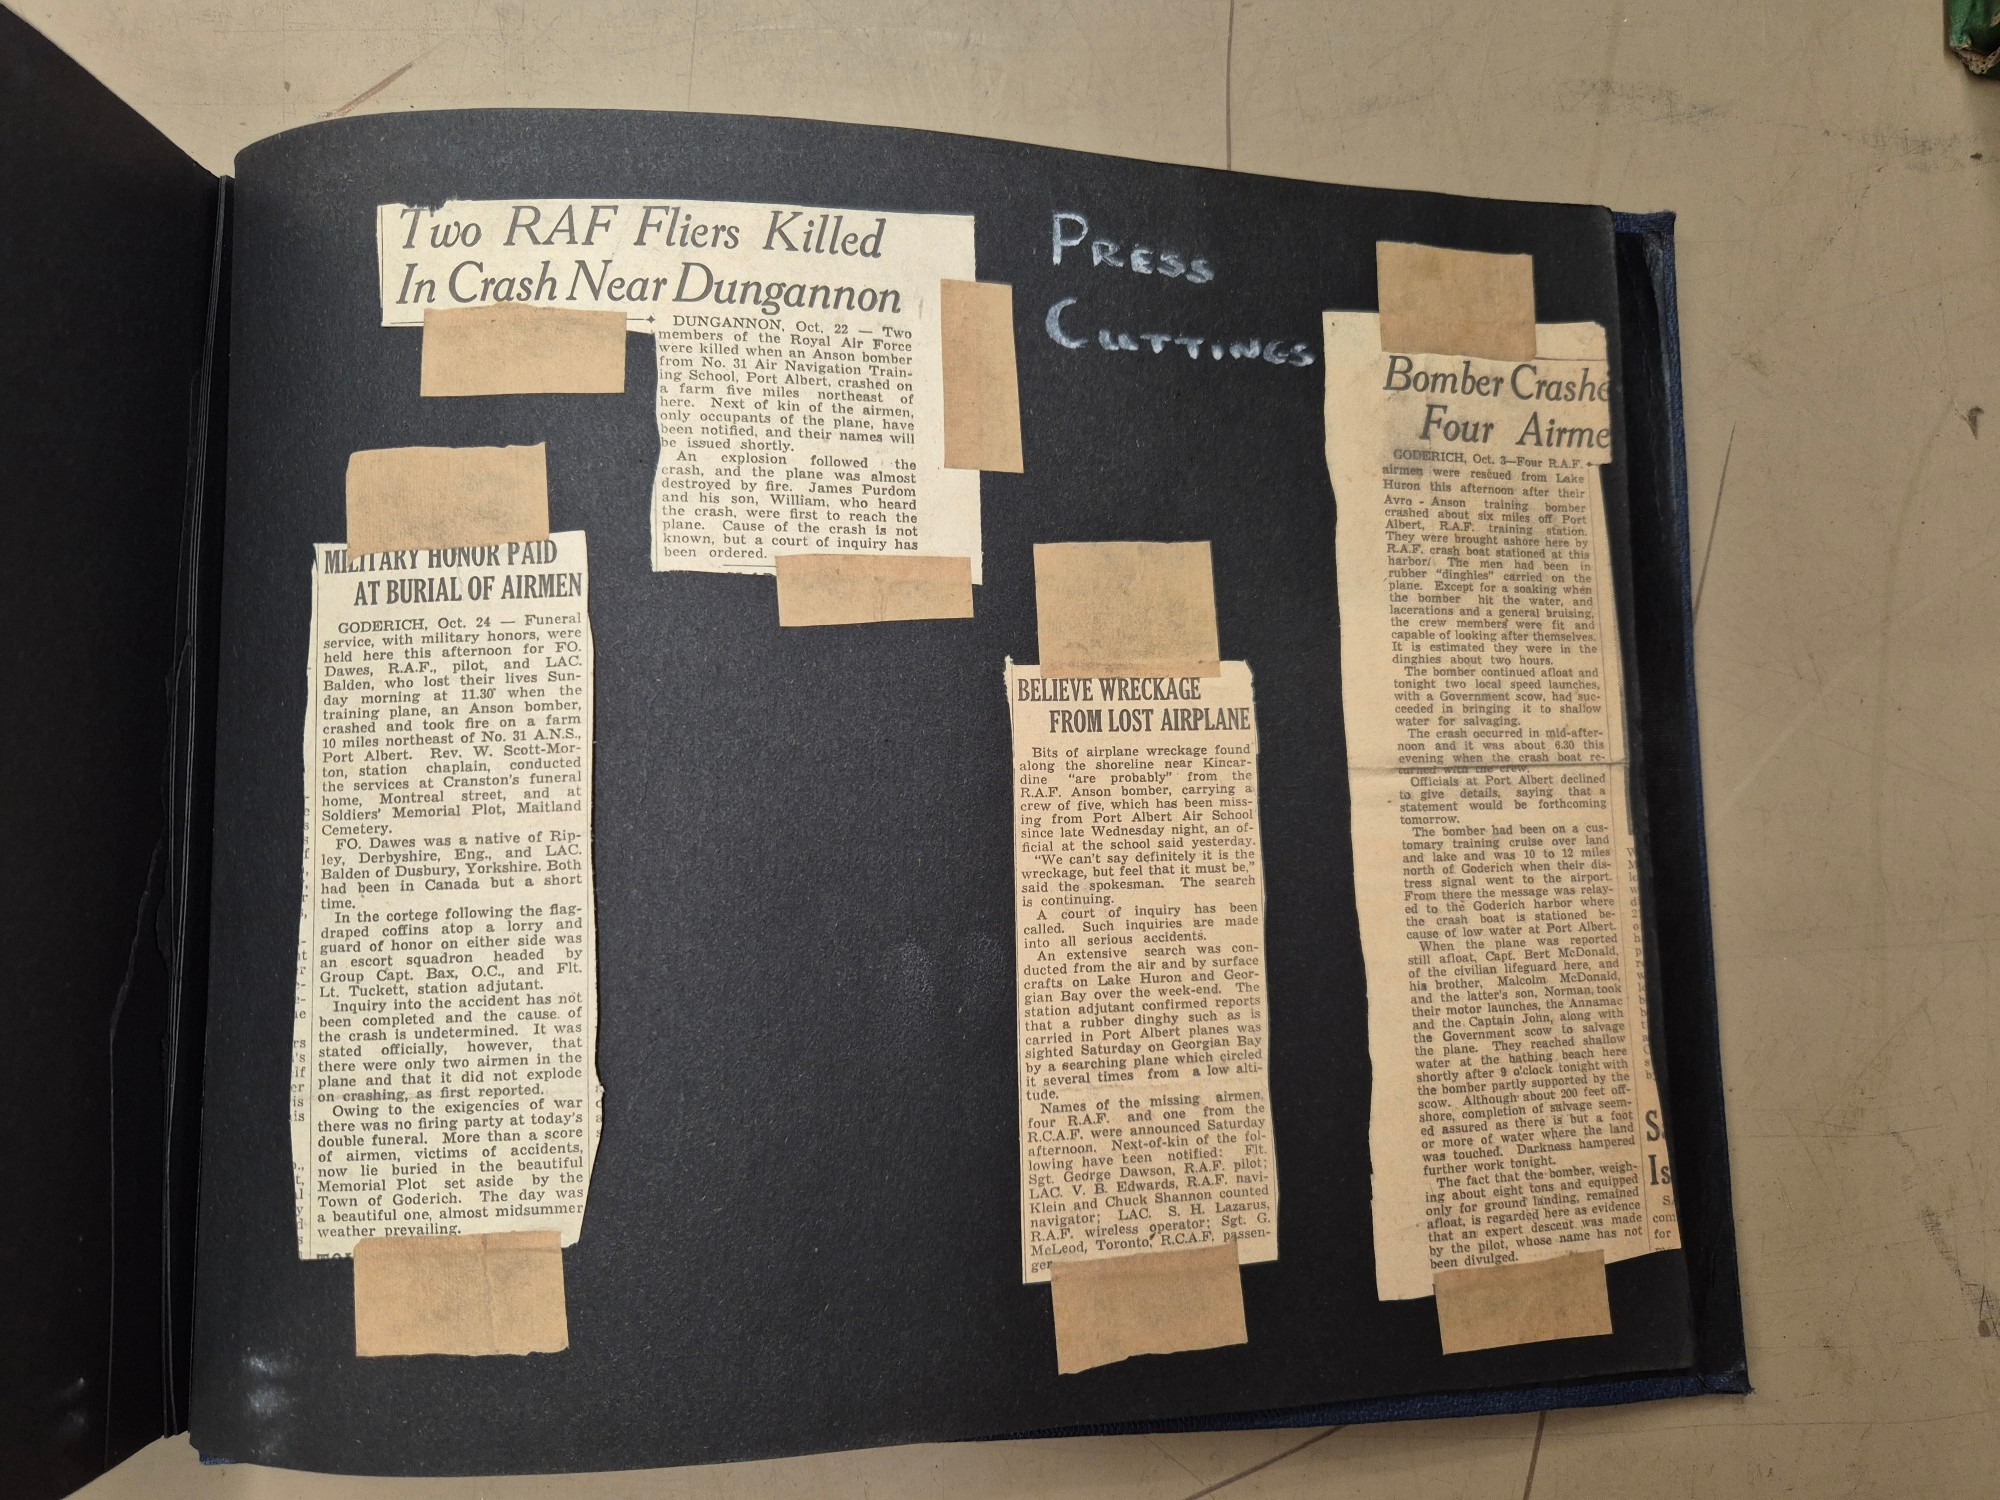 Two RAF Fliers Killed
In Crash Near Dungannon
DUNGANNON, Oct. 22 — Two
members of the Royal Air Force
were killed when an Anson bomber
from No. 31 Air Navigation Train-
ing School, Port Albert, crashed on
a farm five miles northeast of
here. Next of kin of the airmen,
only occupants of the plane, have
been notified, and their names will
be issued shortly.
An explosion followed the
crash, and the plane was almost
destroyed by fire. James Purdom
and his son, William, who heard
the crash, were first to reach the
plane. Cause of the crash is not
known, but a court of inquiry has
been ordered.
PRESS
CUTTINGS
MILITARY HONOR PAID
AT BURIAL OF AIRMEN
GODERICH, Oct. 24 — Funeral
service, with military honors, were
held here this afternoon for FO.
Dawes, R.A.F., pilot, and LAC.
Balden, who lost their lives Sun-
day morning at 11.30 when the
training plane, an Anson bomber,
crashed and took fire on a farm
10 miles northeast of No. 31 A.N.S.,
Port Albert. Rev. W. Scott-Mor-
ton, station chaplain, conducted
the services at Cranston's funeral
home, Montreal street, and at
Soldiers' Memorial Plot, Maitland
Cemetery.
FO. Dawes was a native of Rip-
ley, Derbyshire, Eng., and LAC.
Balden of Dusbury, Yorkshire. Both
had been in Canada but a short
time.
In the cortege following the flag-
draped coffins atop a lorry and
guard of honor on either side was
an escort squadron headed by
Group Capt. Bax, O.C., and Flt.
Lt. Tuckett, station adjutant.
Inquiry into the accident has not
been completed and the cause of
the crash is undetermined. It was
stated officially, however, that
there were only two airmen in the
plane and that it did not explode
on crashing, as first reported.
Owing to the exigencies of war
there was no firing party at today's
double funeral. More than a score
of airmen, victims of accidents,
now lie buried in the beautiful
Memorial Plot set aside by the
Town of Goderich. The day was
a beautiful one, almost midsummer
weather prevailing.
BELIEVE WRECKAGE
FROM LOST AIRPLANE
Bits of airplane wreckage found
along the shoreline near Kincar-
dine "are probably" from the
R.A.F. Anson bomber, carrying a
crew of five, which has been miss-
ing from Port Albert Air School
since late Wednesday night, an of-
ficial at the school said yesterday.
"We can't say definitely it is the
wreckage, but feel that it must be,"
said the spokesman. The search
is continuing.
A court of inquiry has been
called. Such inquiries are made
into all serious accidents.
An extensive search was con-
ducted from the air and by surface
crafts on Lake Huron and Geor-
gian Bay over the week-end. The
station adjutant confirmed reports
that a rubber dinghy such as is
carried in Port Albert planes was
sighted Saturday on Georgian Bay
by a searching plane which circled
it several times from a low alti-
tude.
Names of the missing airmen,
four R.A.F. and one from the
R.C.A.F. were announced Saturday
afternoon. Next-of-kin of the fol-
lowing have been notified: Flt.
Sgt. George Dawson, R.A.F. pilot;
LAC. V. B. Edwards, R.A.F. navi-
Klein and Chuck Shannon counted
navigator; LAC. S. H. Lazarus,
R.A.F. wireless operator; Sgt. G.
McLeod, Toronto, R.C.A.F. passen-
ger
Bomber Crashe
Four Airme
GODERICH, Oct. 3—Four R.A.F.
airmen were rescued from Lake
Huron this afternoon after their
Avro-Anson training bomber
crashed about six miles off Port
Albert, R.A.F. training station.
They were brought ashore here by
R.A.F. crash boat stationed at this
harbor. The men had been in
rubber "dinghies" carried on the
plane. Except for a soaking when
the bomber hit the water, and
lacerations and a general bruising,
the crew members were fit and
capable of looking after themselves.
It is estimated they were in the
dinghies about two hours.
The bomber continued afloat and
tonight two local speed launches,
with a Government scow, had suc-
ceeded in bringing it to shallow
water for salvaging.
The crash occurred in mid-after-
noon and it was about 6.30 this
evening when the crash boat re-
turned with the crew.
Officials at Port Albert declined
to give details, saying that a
statement would be forthcoming
tomorrow.
The bomber had been on a cus-
tomary training cruise over land
and lake and was 10 to 12 miles
north of Goderich when their dis-
tress signal went to the airport.
From there the message was relay-
ed to the Goderich harbor where
the crash boat is stationed be-
cause of low water at Port Albert.
When the plane was reported
still afloat, Capt. Bert McDonald,
of the civilian lifeguard here, and
his brother, Malcolm McDonald,
and the latter's son, Norman, took
their motor launches, the Annamac
and the Captain John, along with
the Government scow to salvage
the plane. They reached shallow
water at the bathing beach here
shortly after 9 o'clock tonight with
the bomber partly supported by the
scow. Although about 200 feet off-
shore, completion of salvage seem-
ed assured as there is but a foot
or more of water where the land
was touched. Darkness hampered
further work tonight.
The fact that the bomber, weigh-
ing about eight tons and equipped
only for ground landing, remained
afloat, is regarded here as evidence
that an expert descent was made
by the pilot, whose name has not
been divulged.